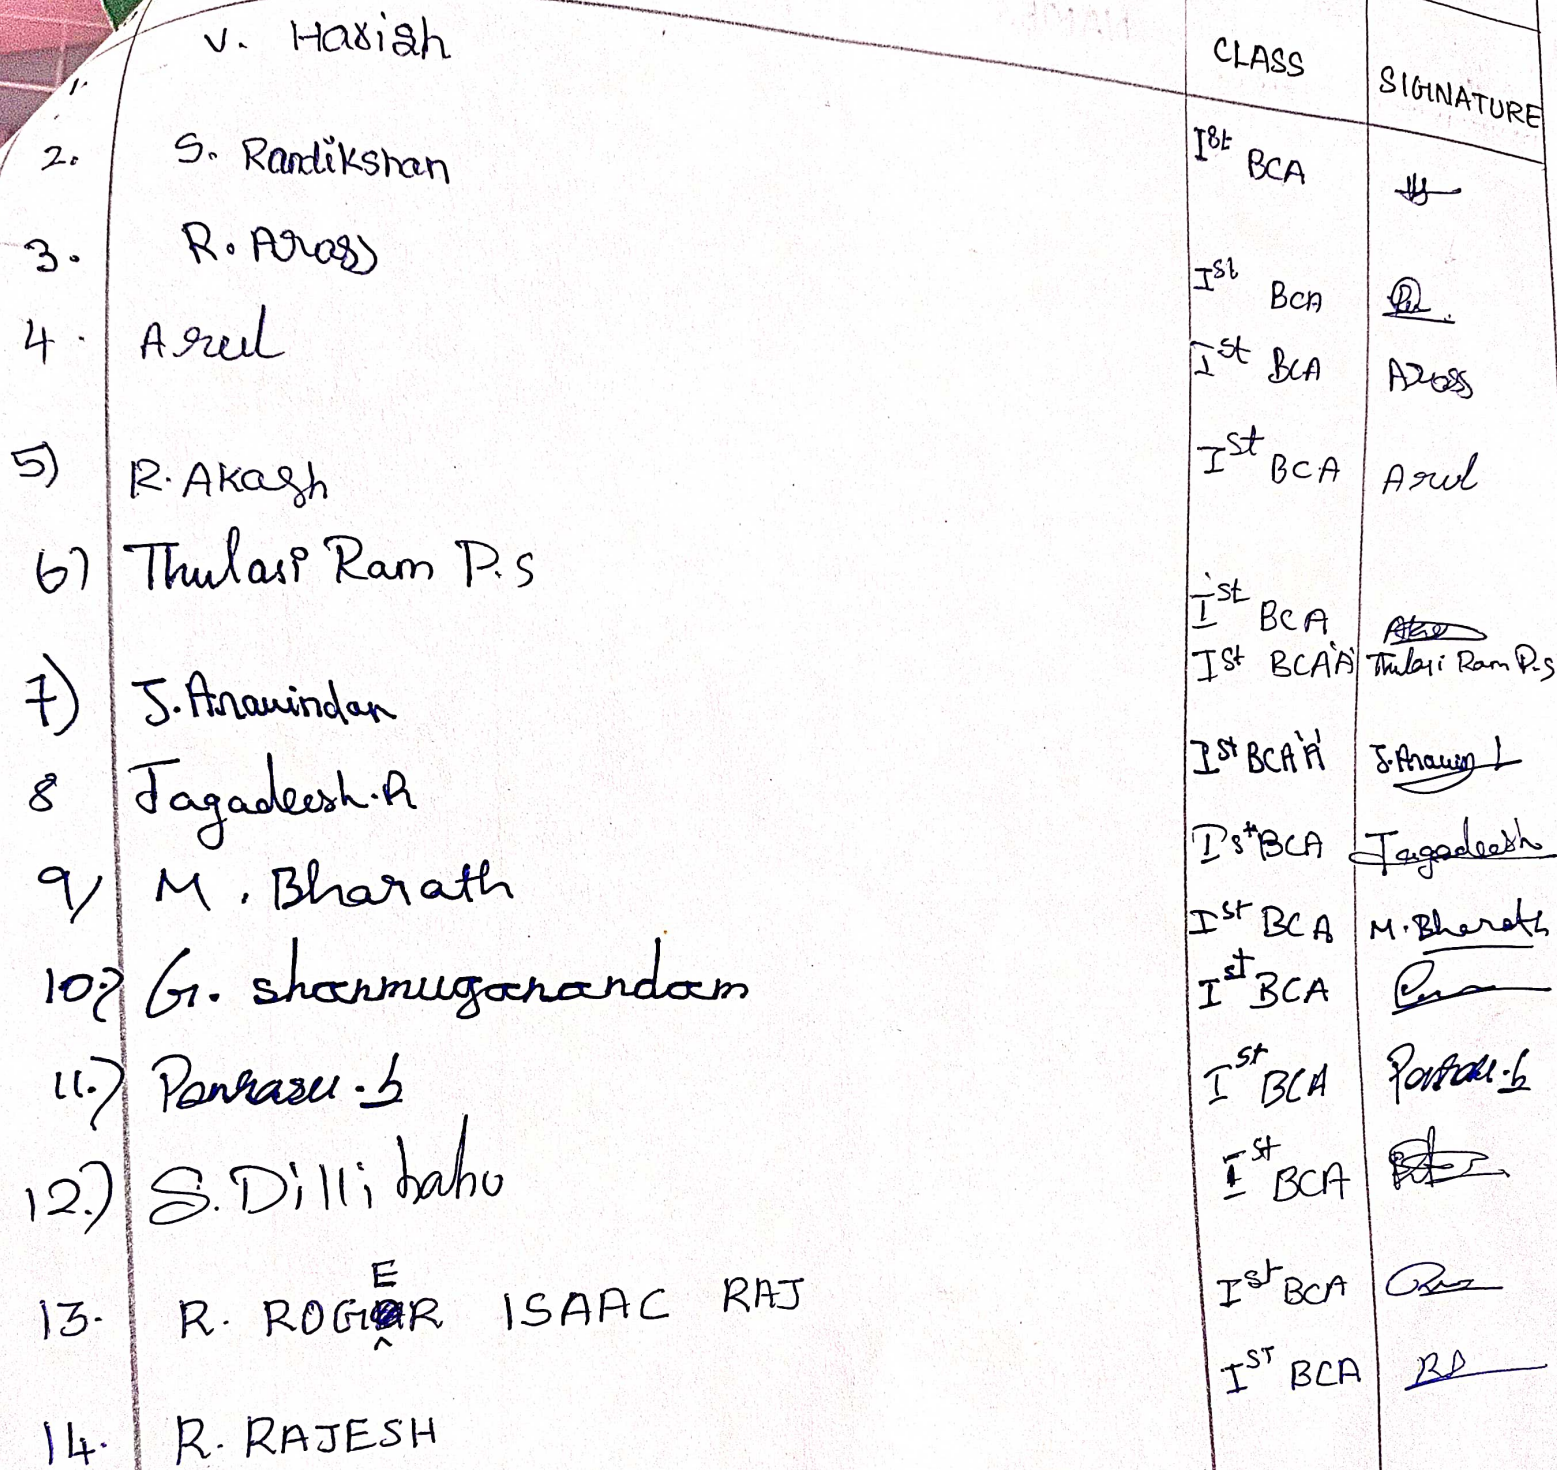 CLASS SIGINATURE
1. V. Harish Ist BCA
2. S. Randikshan Ist BCA
3. R. Arass Ist BCA Arass
4. Arul Ist BCA Arul
5) R. Akash Ist BCA
6) Thulasi Ram P.S Ist BCA 'A' Thulasi Ram P.S
7) J. Aravindan Ist BCA 'A'
8 Jagadeesh.R Ist BCA Jagadeesh
9) M. Bharath Ist BCA M. Bharath
10) G. shanmuganandam Ist BCA
11.) Ponrasu.b Ist BCA
12.) S. Dilli babu Ist BCA
13. R. ROGER ISAAC RAJ Ist BCA
14. R. RAJESH IST BCA